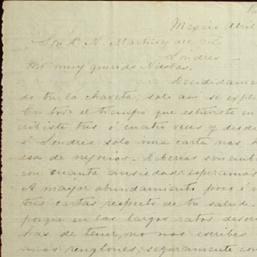 Mexico Abril
Sor Dn N. Martinez del Rio
Londres
Mi muy querido Nicolas
Decididamente
de tu la chaveta, solo asi se explica
todo el tiempo que estuviste en
ste tres ó cuatro veces y desde
ó Londres solo una carta nos h
esa de negocios. Deberias
con cuanta ansiedad esperamos
A mayor abundamiento poco ó
tres cartas respecto de tu salud
porque en los largos ratos deso
has de tener, no nos escribes
unos renglones, seguramente con